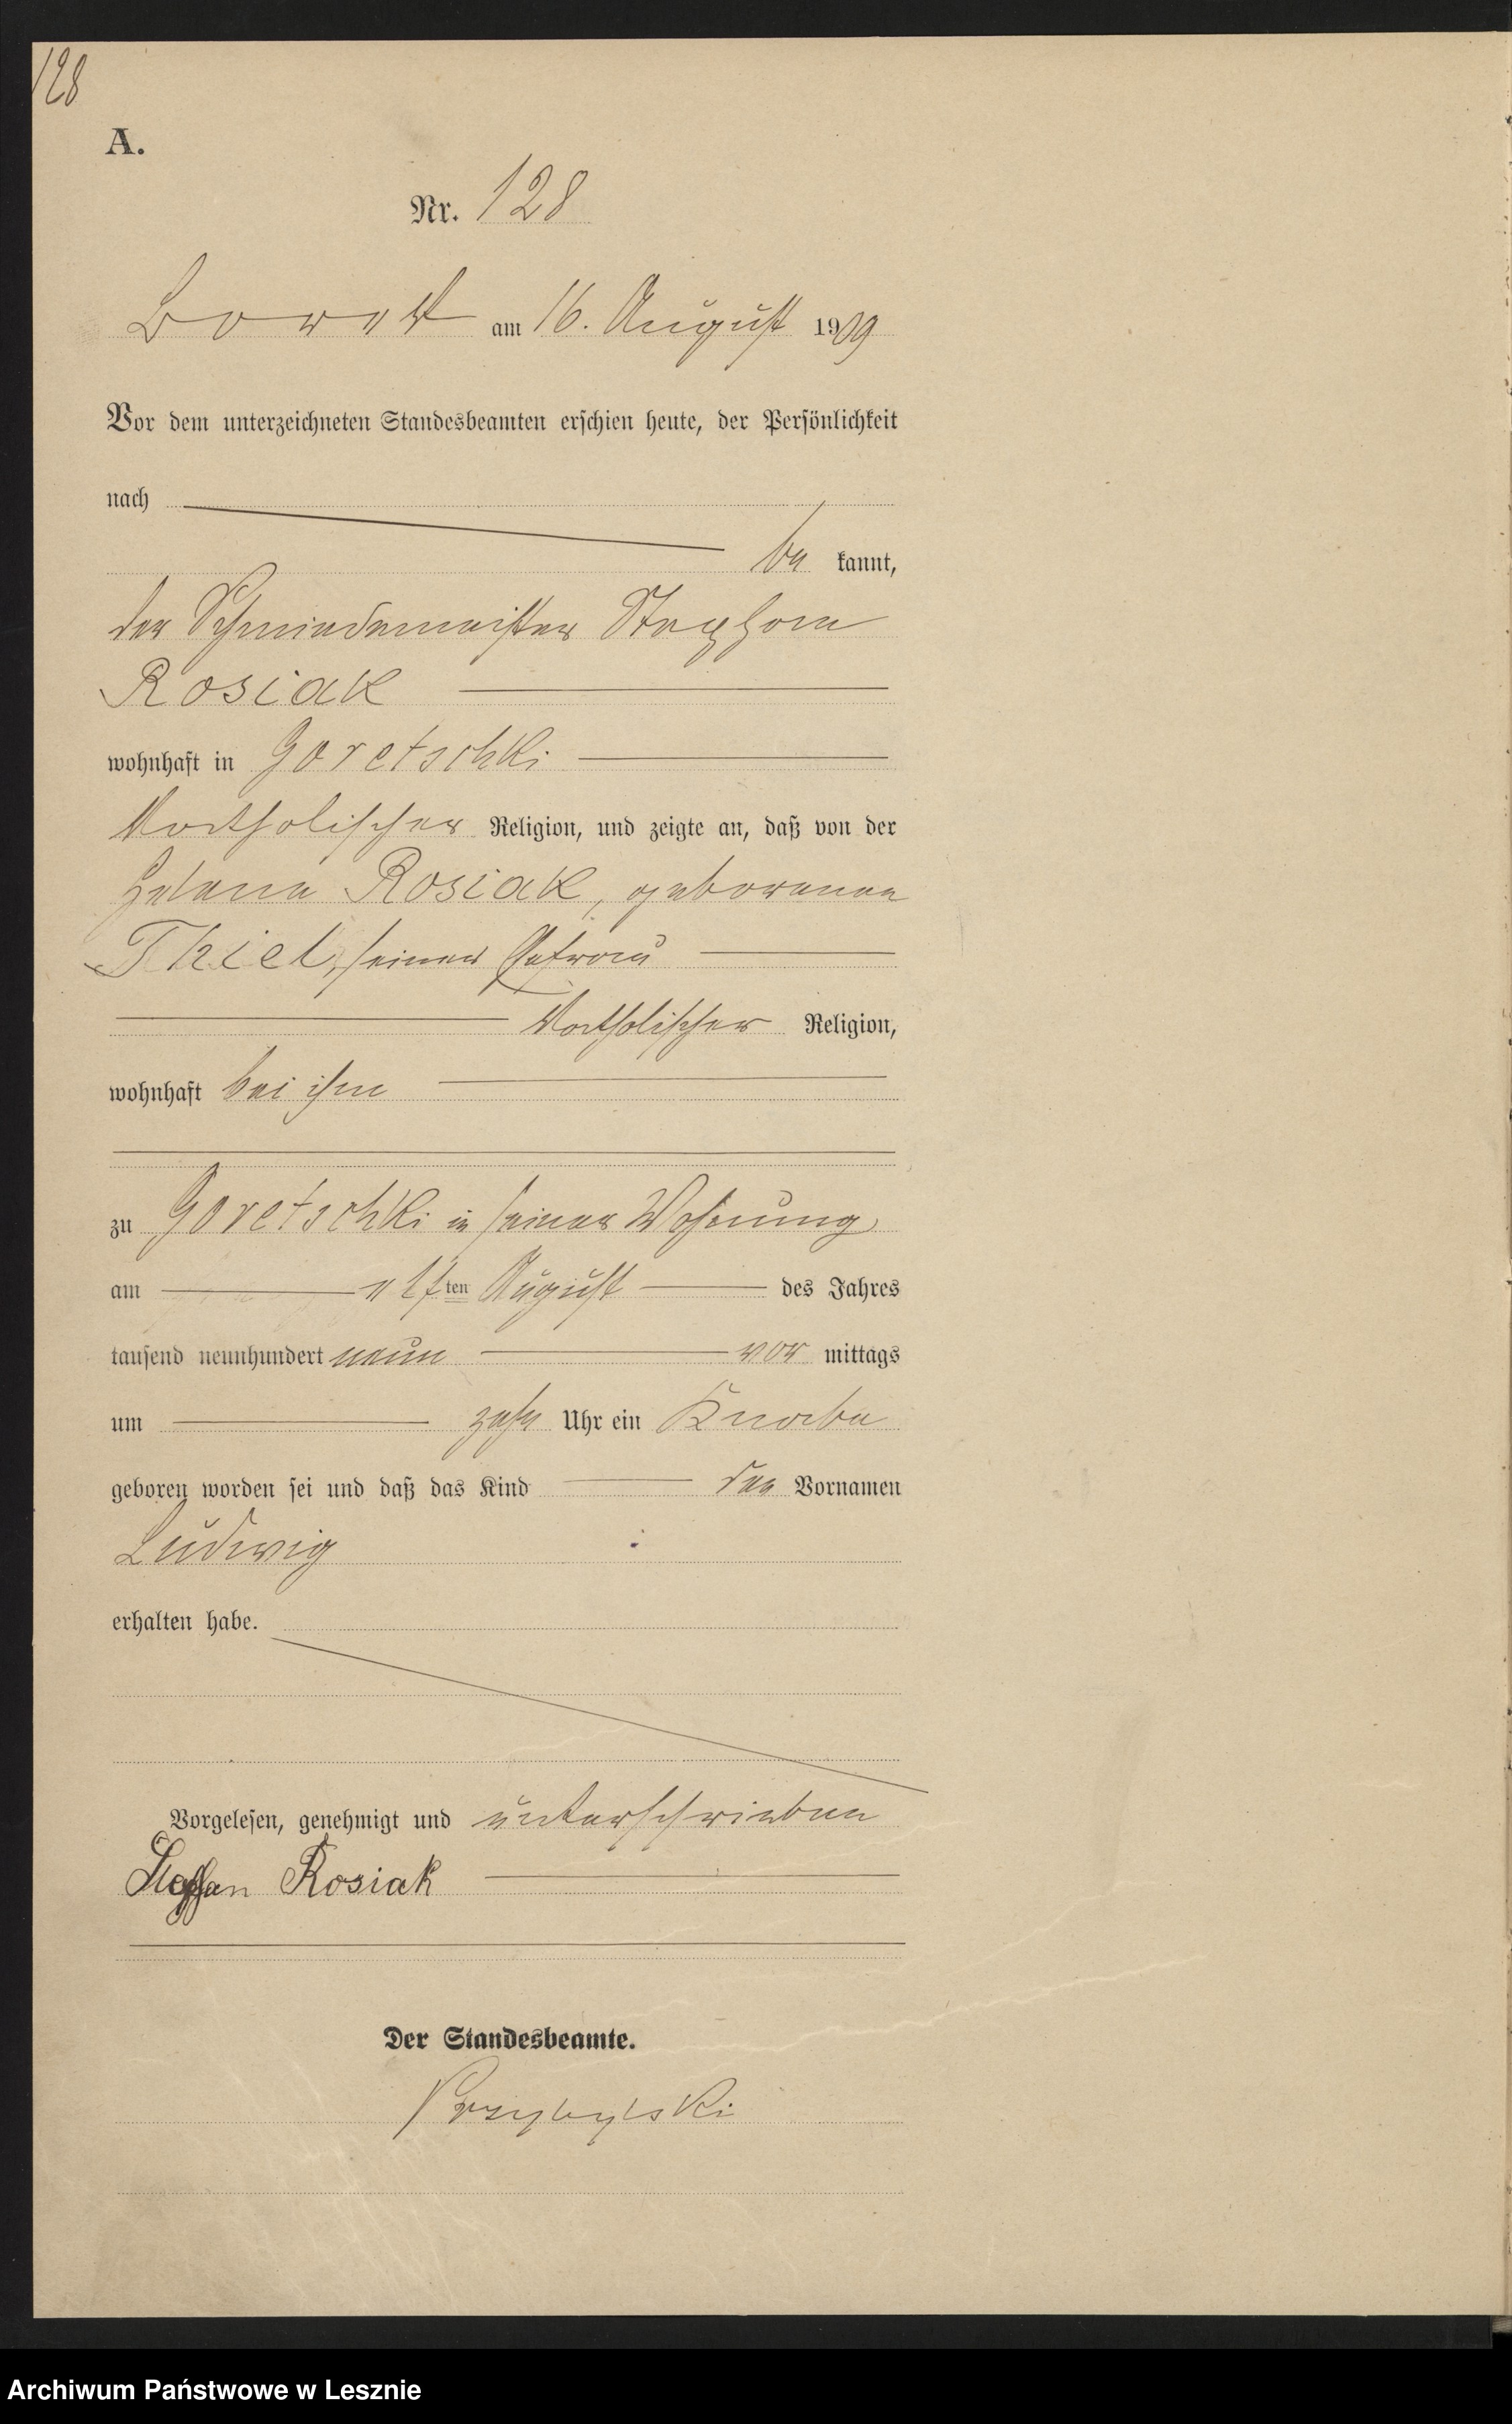 128
A.
Nr. 128
Borek am 16. August 1909
Vor dem unterzeichneten Standesbeamten erschien heute, der Persönlichkeit
nach
be kannt,
der Schmiedemeister Stephan
Rosiak
wohnhaft in Goretschki
katholischer Religion, und zeigte an, daß von der
Helene Rosiak, geborenen
Thiel, seiner Ehefrau
katholischer Religion,
wohnhaft bei ihm
zu Goretschki in seiner Wohnung
am elften August des Jahres
tausend neunhundert neun vor mittags
um zehn Uhr ein Knabe
geboren worden sei und daß das Kind den Vornamen
Ludwig
erhalten habe.
Vorgelesen, genehmigt und unterschrieben
Stephan Rosiak
Der Standesbeamte.
Przybylski
Archiwum Państwowe w Lesznie